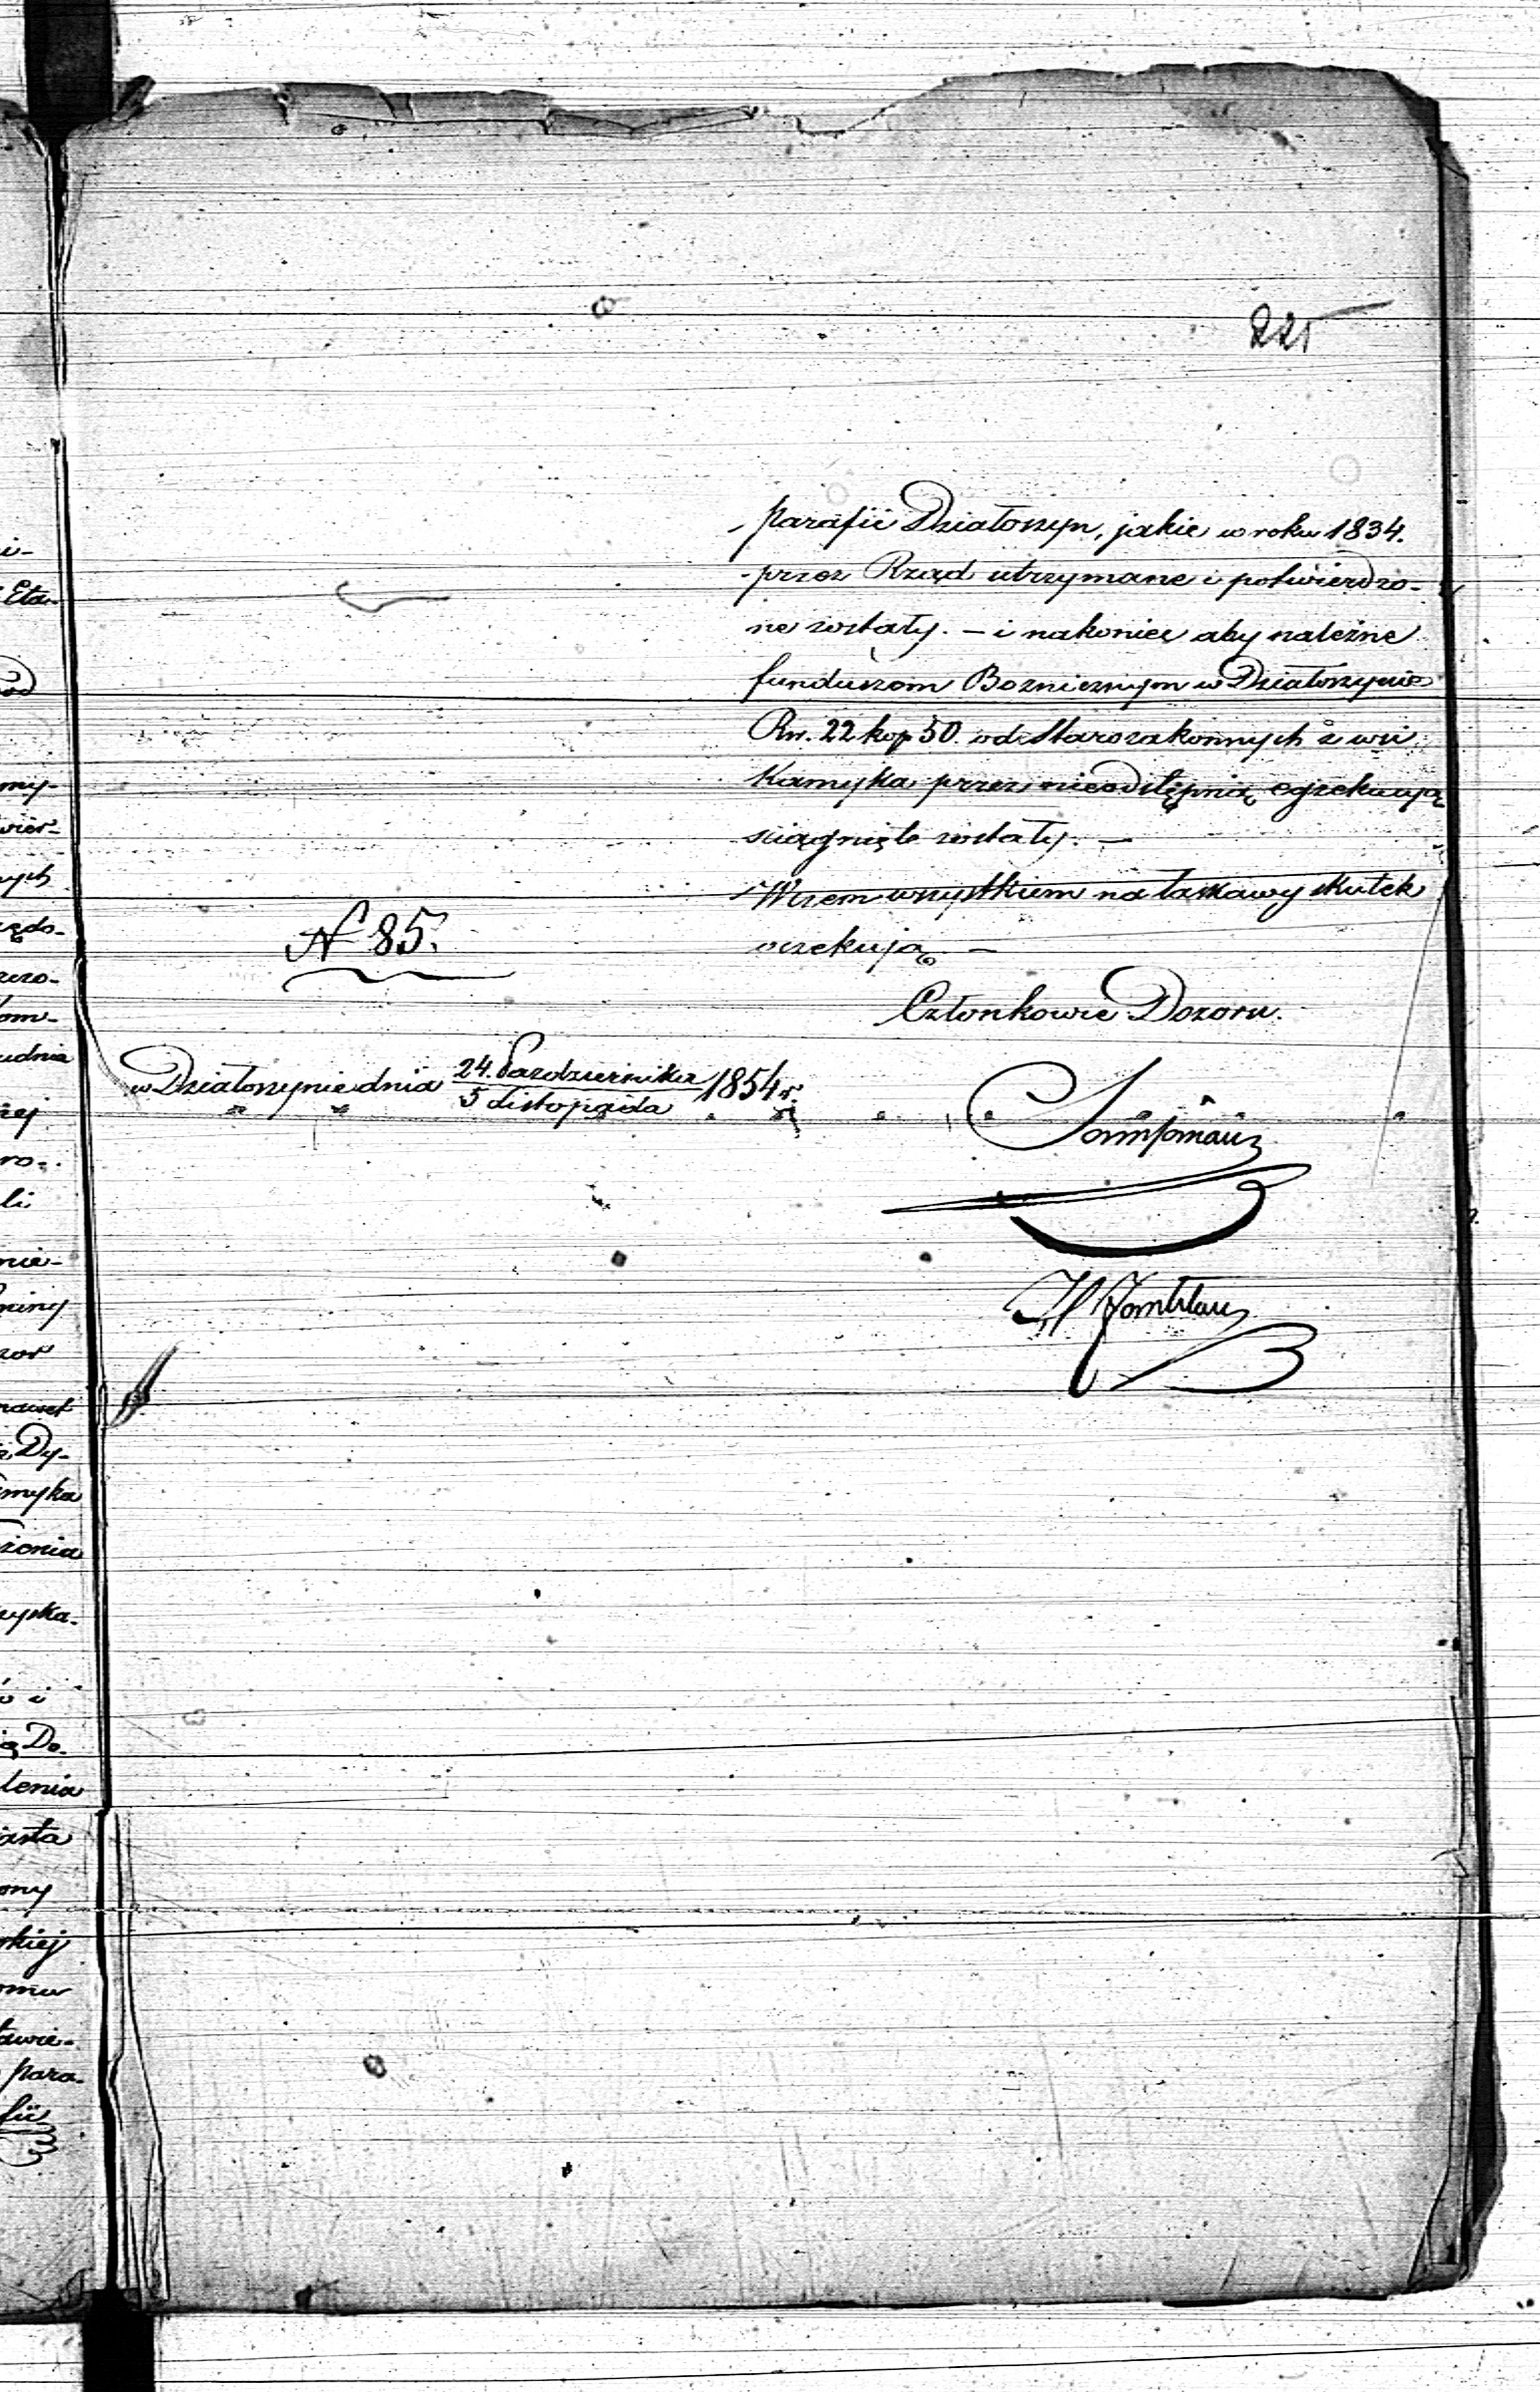 225
parafii Działoszyn, jakie w roku 1834.
przez Rząd utrzymane i potwierdzo-
ne zostały. — i nakoniec aby należne
funduszom Bozniczym w Działoszynie
Rsr. 22 kop 50. od Starozakonnych z wsi
Kamyka przez nieodstępną egzekucyą
sciągnięte zostały. —
Wczem wszystkiem na łaskawy skutek
oczekują. —
N 85.
Członkowie Dozoru.
w Działoszynie dnia 24. Pazdziernika 1854 r.
5 Listopada
i-
Eta-
my-
wier-
nych
zędo-
czo-
udnia
żej
ro-
li
nie-
miny
zor
Dy-
myka
żenia
zyska-
Do-
lenia
iasta
ony
skiej
omu
tawie-
para-
fii